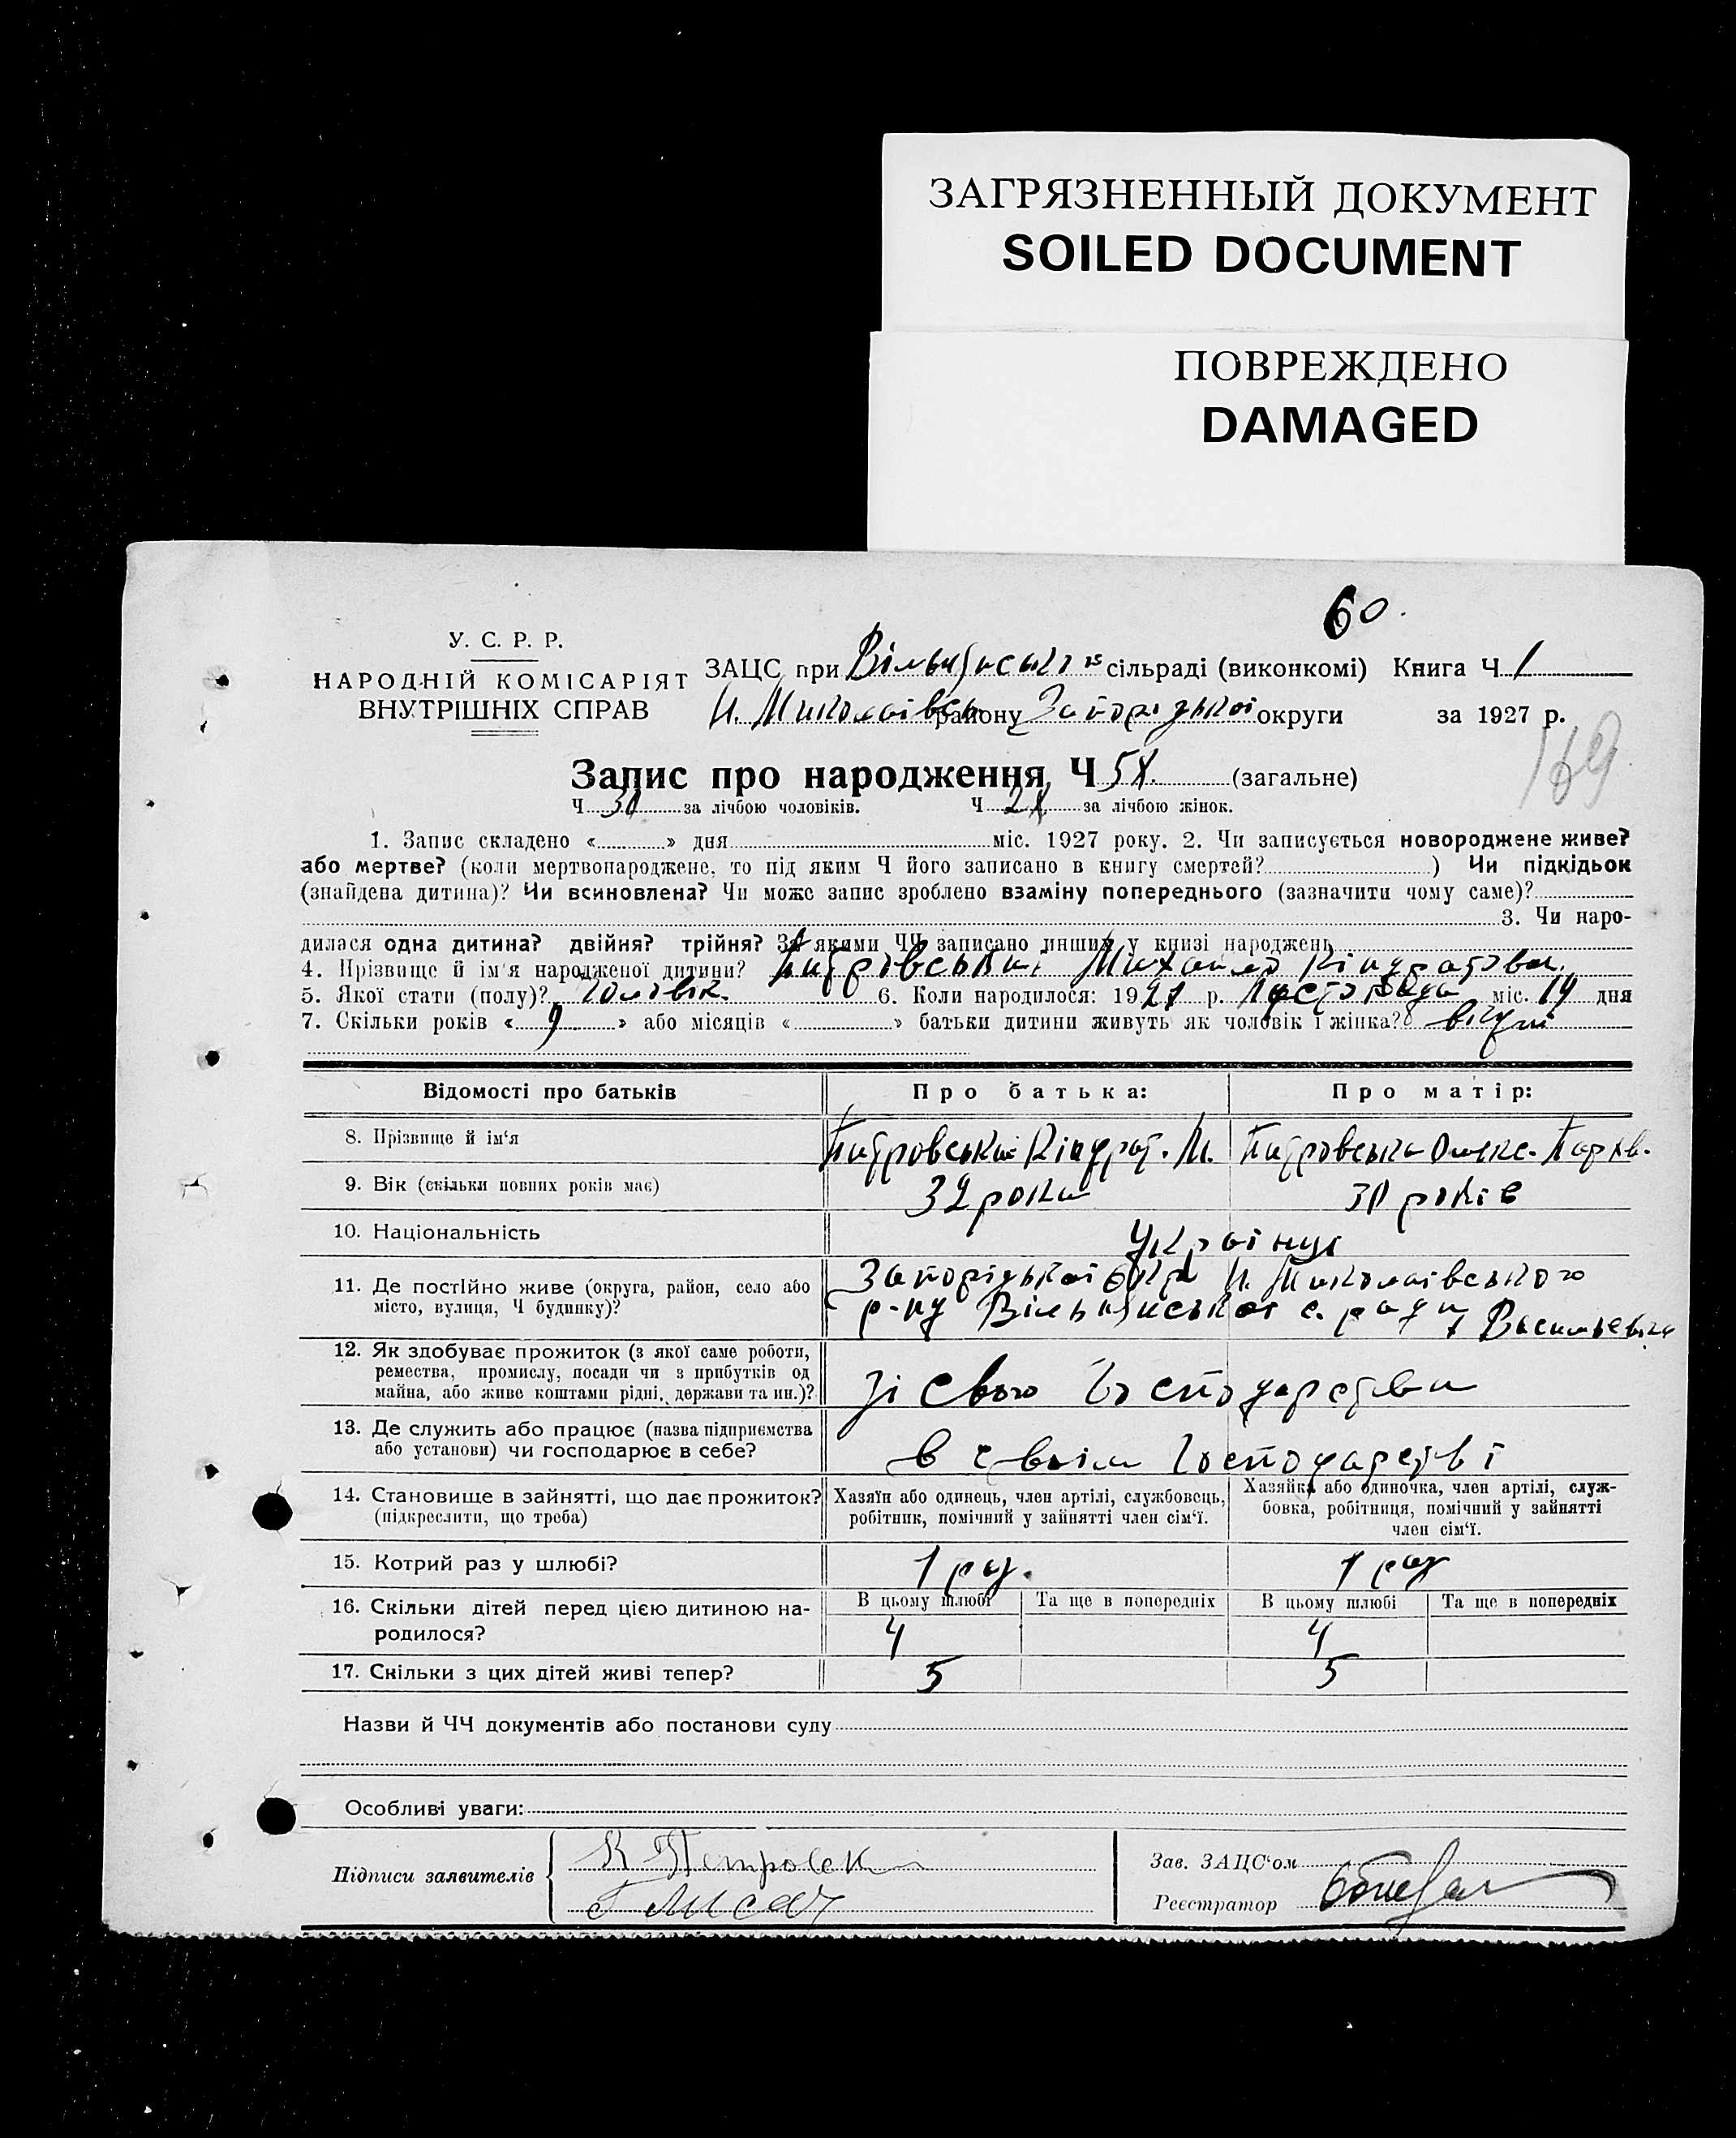 ЗАГРЯЗНЕННЫЙ ДОКУМЕНТ
SOILED DOCUMENT
ПОВРЕЖДЕНО
DAMAGED
60.
У. С. Р. Р.
НАРОДНІЙ КОМІСАРІЯТ
ВНУТРІШНІХ СПРАВ
ЗАЦС при сільраді (виконкомі) Книга Ч. 1
Н. Миколаївськ району Запорізької округи за 1927 р.
169
Запис про народження, Ч (загальне)
Ч за лічбою чоловіків. Ч за лічбою жінок.
1. Запис складено « » дня міс. 1927 року. 2. Чи записується новороджене живе?
або мертве? (коли мертвонароджене, то під яким Ч його записано в книгу смертей? ) Чи підкідьок
(знайдена дитина)? Чи всиновлена? Чи може запис зроблено взаміну попереднього (зазначити чому саме)?
3. Чи наро-
дилася одна дитина? двійня? трійня? За якими ЧЧ записано инших у книзі народжень
4. Прізвище й ім'я народженої дитини? Питровський Михайло Кіндратович
5. Якої стати (полу)? чоловік. 6. Коли народилося: 1927 р. Листопада міс. 14 дня
7. Скільки років « 9 » або місяців « » батьки дитини живуть як чоловік і жінка?
Відомості про батьків
Про батька:
Про матір:
8. Прізвище й ім'я
Питровський Кіндрат. М.
Питровська Олекс. Парх.
9. Вік (скільки повних років має)
32 роки
30 років
10. Національність
Українці
11. Де постійно живе (округа, район, село або
місто, вулиця, Ч будинку)?
Запорізької окр Н. Миколаївського
р-ну с. ради
12. Як здобуває прожиток (з якої саме роботи,
ремества, промислу, посади чи з прибутків од
майна, або живе коштами рідні, держави та ин.)?
зі свого господарства
13. Де служить або працює (назва підприємства
або установи) чи господарює в себе?
в своїм господарстві
14. Становище в зайнятті, що дає прожиток?
(підкреслити, що треба)
Хазяїн або одинець, член артілі, службовець,
робітник, помічний у зайнятті член сім'ї.
Хазяйка або одиночка, член артілі, служ-
бовка, робітниця, помічний у зайнятті
член сім'ї.
15. Котрий раз у шлюбі?
1 раз.
1 раз
16. Скільки дітей перед цією дитиною на-
родилося?
В цьому шлюбі
Та ще в попередніх
В цьому шлюбі
Та ще в попередніх
4
4
17. Скільки з цих дітей живі тепер?
5
5
Назви й ЧЧ документів або постанови суду
Особливі уваги:
Підписи заявителів
К Петровск
Зав. ЗАЦС'ом
Реєстратор